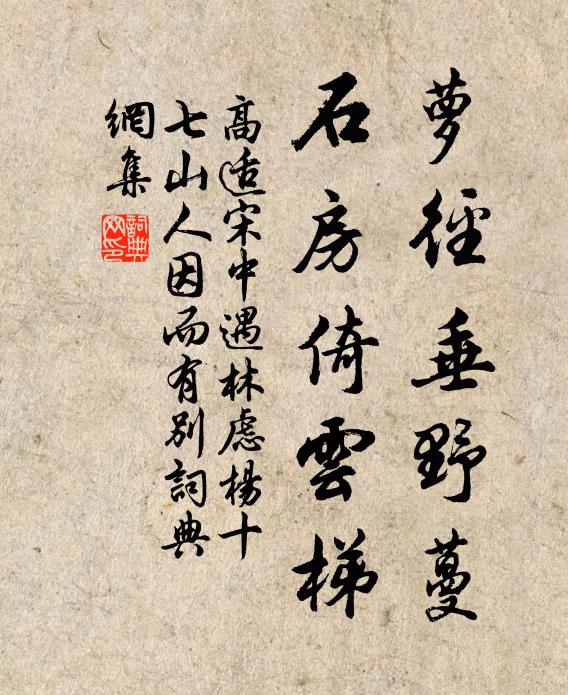 萝徑垂野蔓
石房倚雲梯
高适宋中遇林慮楊十
七山人因而有别詞典
網集
詞典
网印